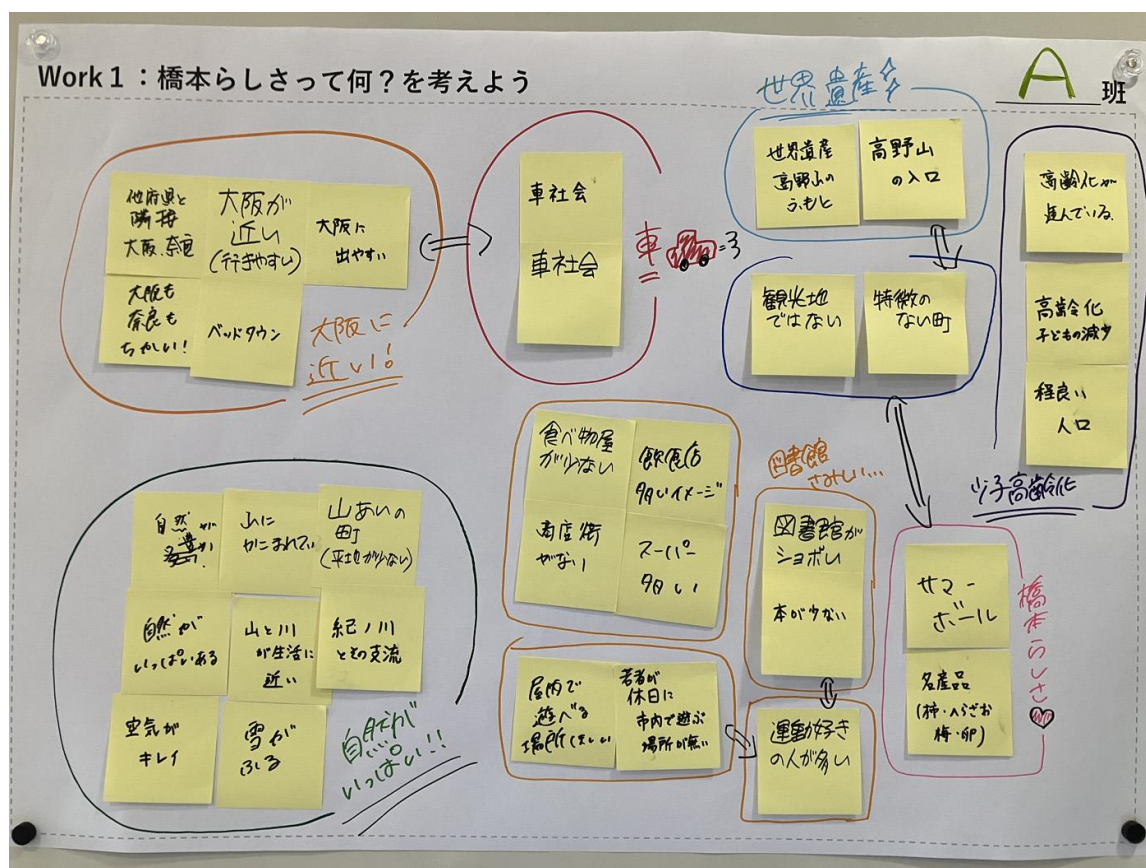 Work 1：橋本らしさって何？を考えよう
A班
他府県と
隣接
大阪、奈良
大阪が
近い
(行きやすい)
大阪に
出やすい
大阪も
奈良も
ちかい！
ベッドタウン
大阪に
近い！
車社会
車社会
車
世界遺産
世界遺産
高野山の
ふもと
高野山
の入口
観光地
ではない
特徴の
ない町
高齢化が
進んでいる
高齢化
子どもの減少
程良い
人口
少子高齢化
自然が
山に
かこまれてい
山あいの
町
(平地が少ない)
自然が
いっぱいある
山と川
が生活に
近い
紀ノ川
とその支流
空気が
キレイ
雪が
ふる
自然が
いっぱい！！
食べ物屋
が少ない
飲食店
多いイメージ
商店街
がない
スーパー
多い
図書館
さみしい…
図書館が
ショボい
本が少ない
屋内で
遊べる
場所ほしい
若者が
休日に
市内で遊ぶ
場所が無い
運動好き
の人が多い
サマー
ボール
名産品
(柿・へらざお
梅・卵)
橋本らしさ